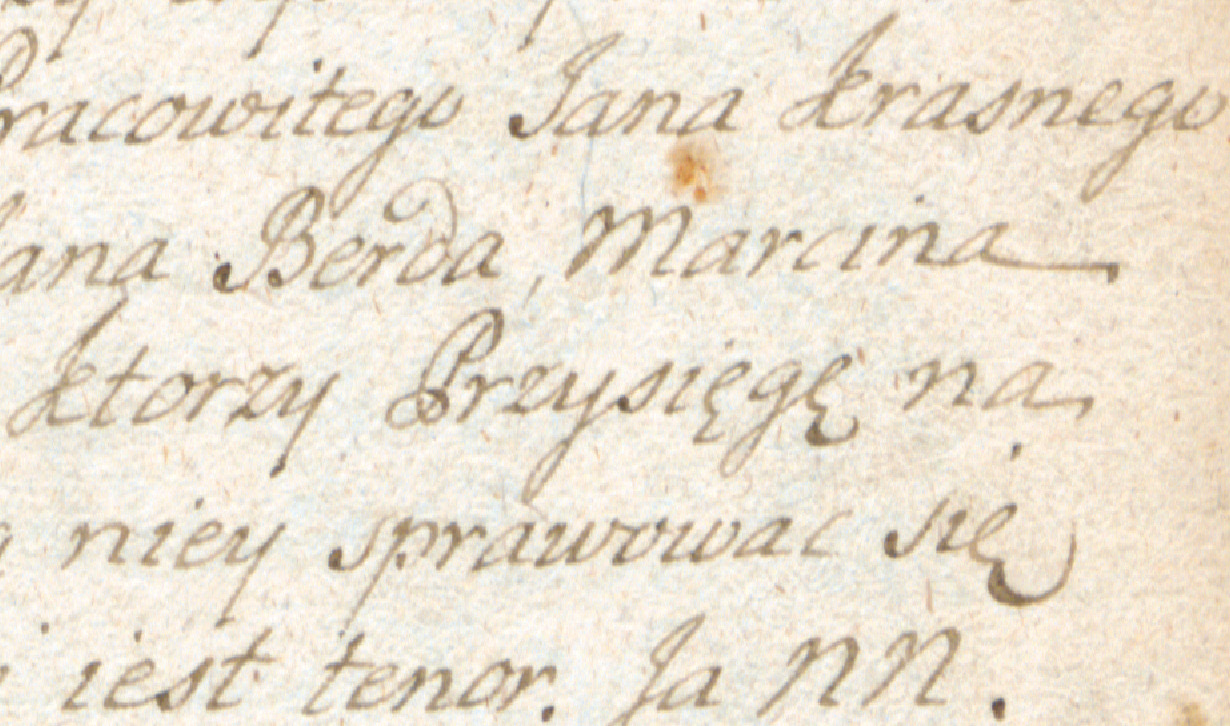 Pracowitego Jana Krasnego
Jana Berda, Marcina
ktorzy Przysięgę na
niey sprawowac się
iest tenor. Ja NN.